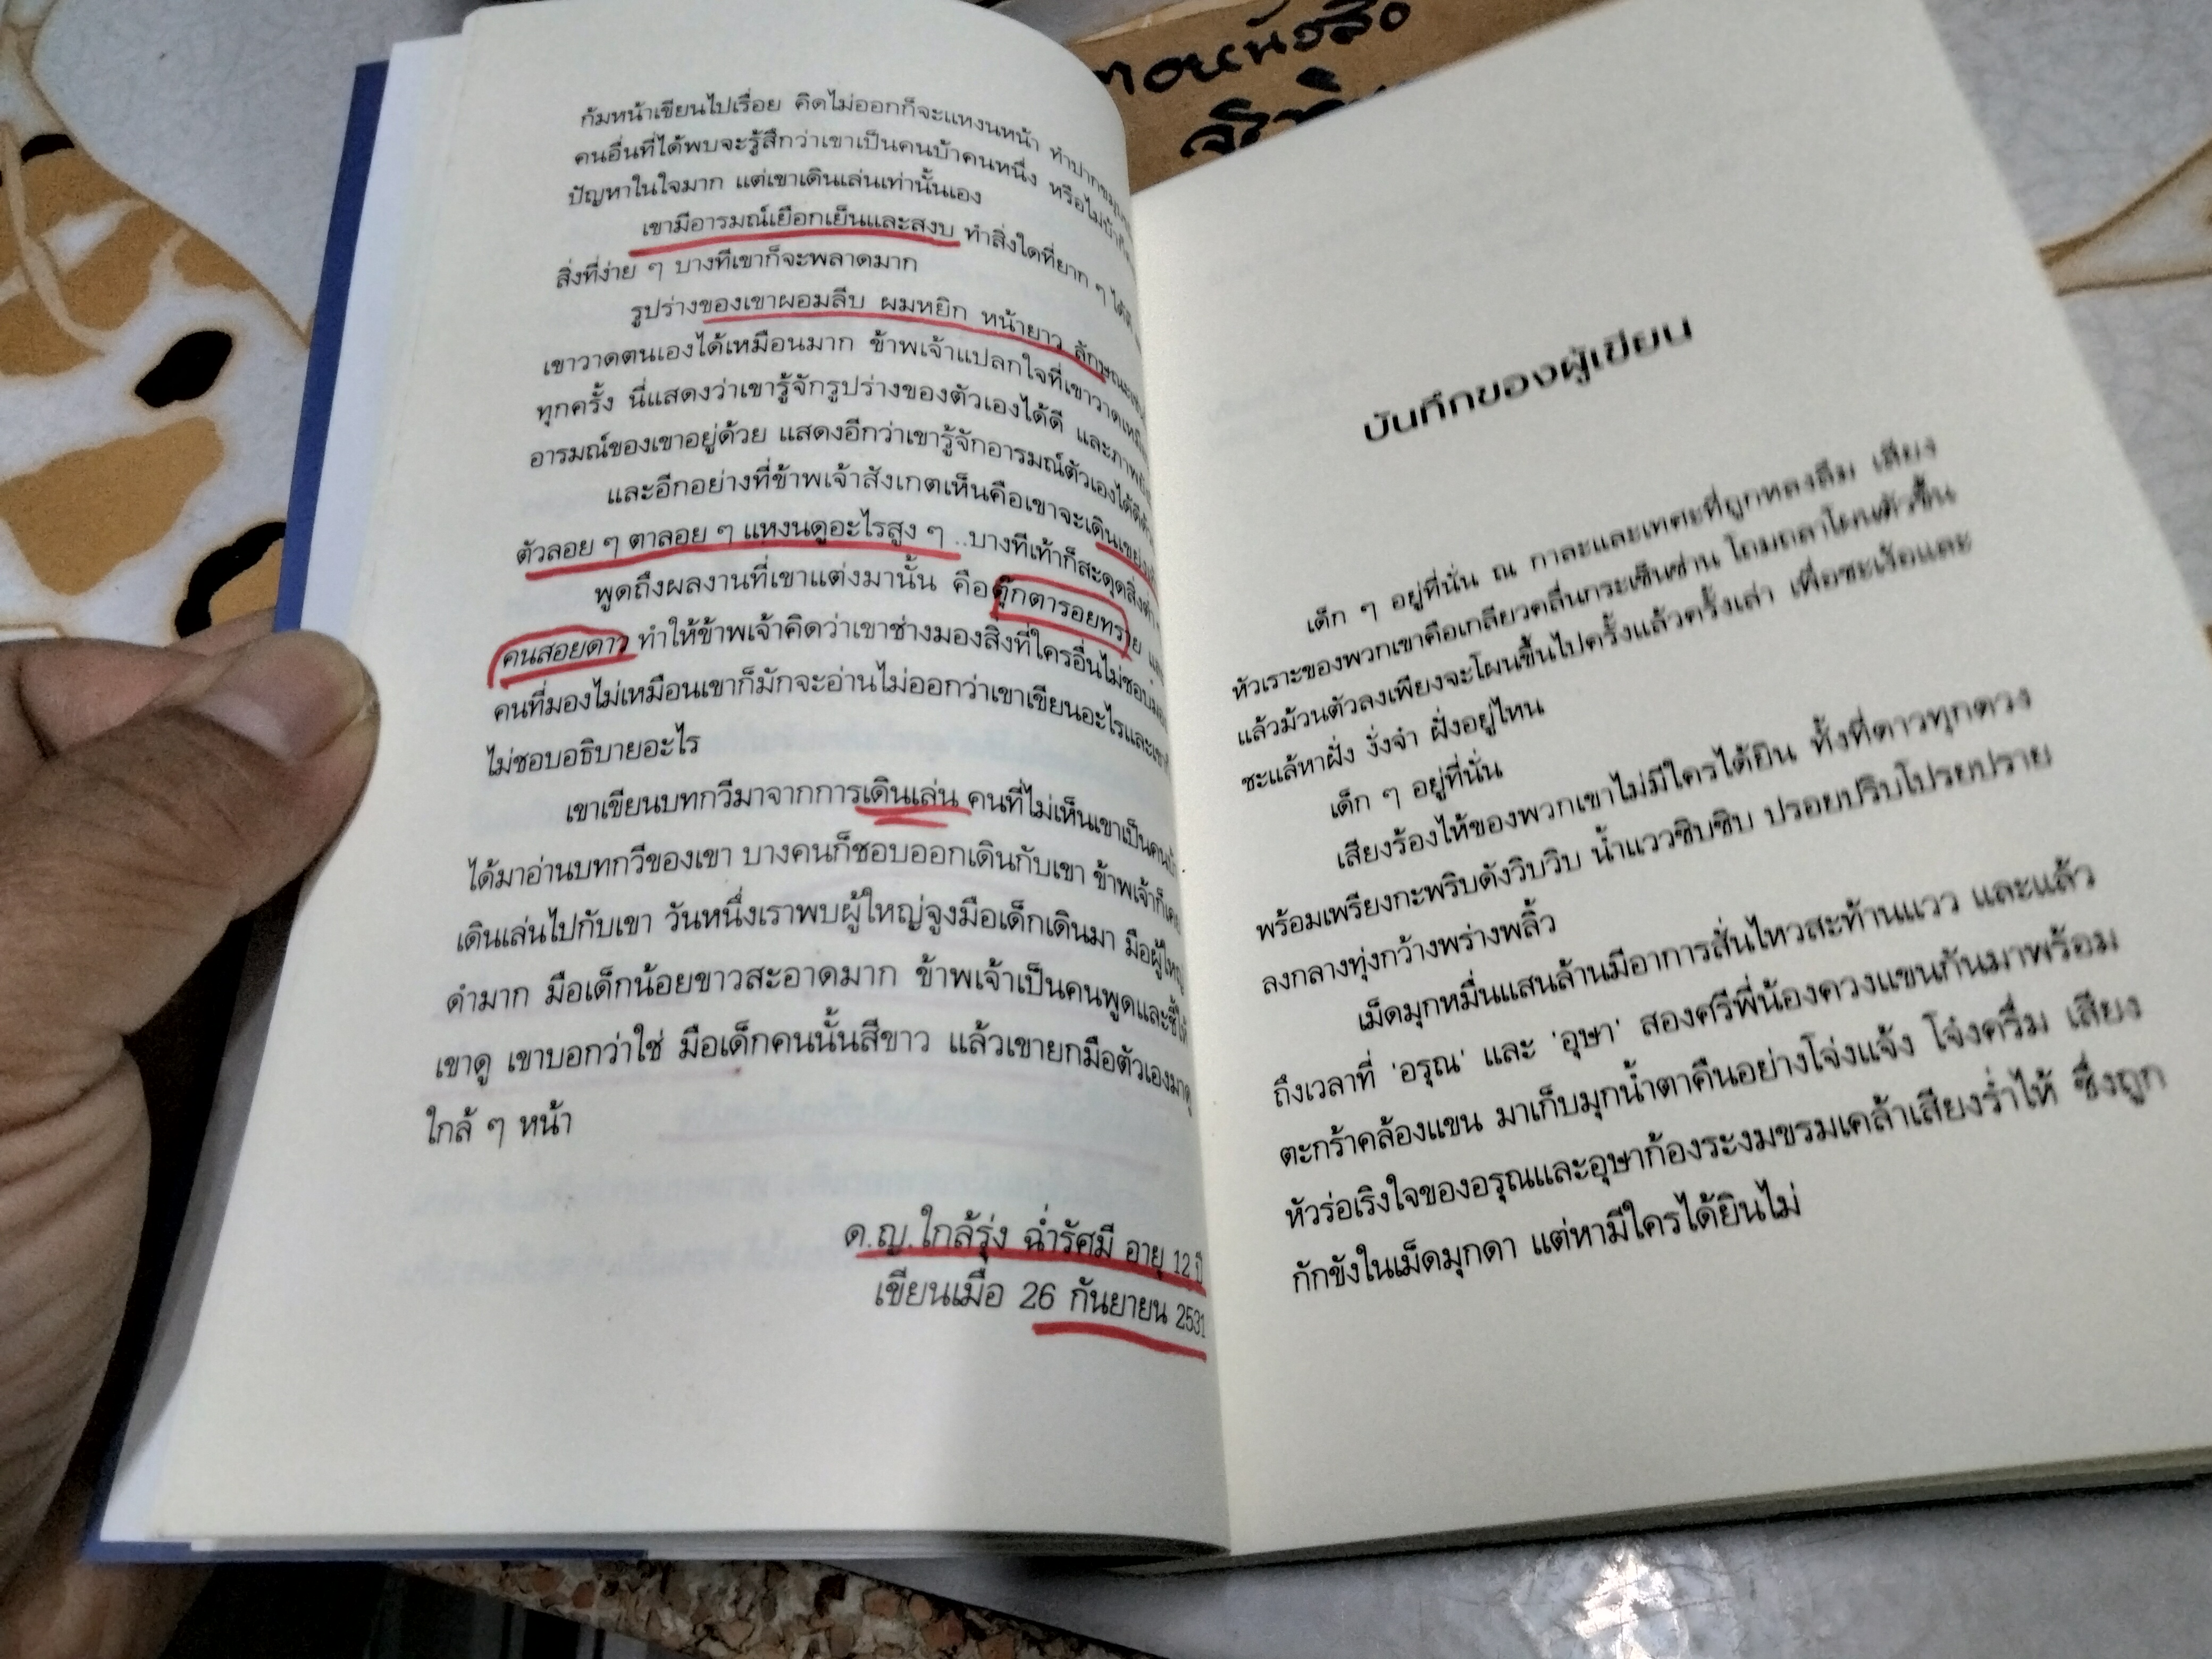 ก้มหน้าเขียนไปเรื่อย คิดไม่ออกก็จะแหงนหน้า
คนอื่นที่ได้พบจะรู้สึกว่าเขาเป็นคนบ้าคนหนึ่ง หรือไม่บ้าก็
ปัญหาในใจมาก แต่เขาเดินเล่นเท่านั้นเอง
เขามีอารมณ์เยือกเย็นและสงบ ทำสิ่งใดที่ยาก ๆ ได้ดี
สิ่งที่ง่าย ๆ บางทีเขาก็จะพลาดมาก
รูปร่างของเขาผอมลีบ ผมหยิก หน้ายาว ลักษณะ
เขาวาดตนเองได้เหมือนมาก ข้าพเจ้าแปลกใจที่เขาวาดเหมือน
ทุกครั้ง นี่แสดงว่าเขารู้จักรูปร่างของตัวเองได้ดี และภาพ
อารมณ์ของเขาอยู่ด้วย แสดงอีกว่าเขารู้จักอารมณ์ตัวเองได้ดี
และอีกอย่างที่ข้าพเจ้าสังเกตเห็นคือเขาจะเดินเขย่ง
ตัวลอย ๆ ตาลอย ๆ แหงนดูอะไรสูง ๆ ..บางทีเท้าก็สะดุดสิ่งต่ำ
พูดถึงผลงานที่เขาแต่งมานั้น คือตุ๊กตารอยทราย
คนสอยดาว ทำให้ข้าพเจ้าคิดว่าเขาช่างมองสิ่งที่ใครอื่นไม่ชอบมอง
คนที่มองไม่เหมือนเขาก็มักจะอ่านไม่ออกว่าเขาเขียนอะไรและเขาก็
ไม่ชอบอธิบายอะไร
เขาเขียนบทกวีมาจากการเดินเล่น คนที่ไม่เห็นเขาเป็นคนบ้า
ได้มาอ่านบทกวีของเขา บางคนก็ชอบออกเดินกับเขา ข้าพเจ้าก็เคย
เดินเล่นไปกับเขา วันหนึ่งเราพบผู้ใหญ่จูงมือเด็กเดินมา มือผู้ใหญ่
ดำมาก มือเด็กน้อยขาวสะอาดมาก ข้าพเจ้าเป็นคนพูดและชี้ให้
เขาดู เขาบอกว่าใช่ มือเด็กคนนั้นสีขาว แล้วเขายกมือตัวเองมาดู
ใกล้ ๆ หน้า
ด.ญ.ใกล้รุ่ง ฉ่ำรัศมี อายุ 12 ปี
เขียนเมื่อ 26 กันยายน 2531
บันทึกของผู้เขียน
เด็ก ๆ อยู่ที่นั่น ณ กาละและเทศะที่ถูกหลงลืม เสียง
หัวเราะของพวกเขาคือเกลียวคลื่นกระเซ็นซ่าน โถมถลาโผนตัวขึ้น
แล้วม้วนตัวลงเพียงจะโผนขึ้นไปครั้งแล้วครั้งเล่า เพื่อชะเร้อและ
ชะแล้หาฝั่ง งั่งจำ ฝั่งอยู่ไหน
เด็ก ๆ อยู่ที่นั่น
เสียงร้องไห้ของพวกเขาไม่มีใครได้ยิน ทั้งที่ดาวทุกดวง
พร้อมเพรียงกะพริบดังวิบวิบ น้ำแววซิบซิบ ปรอยปริบโปรยปราย
ลงกลางทุ่งกว้างพร่างพลิ้ว
เม็ดมุกหมื่นแสนล้านมีอาการสั่นไหวสะท้านแวว และแล้ว
ถึงเวลาที่ 'อรุณ' และ 'อุษา' สองศรีพี่น้องควงแขนกันมาพร้อม
ตะกร้าคล้องแขน มาเก็บมุกน้ำตาคืนอย่างโจ่งแจ้ง โจ๋งครึ่ม เสียง
หัวร่อเริงใจของอรุณและอุษาก้องระงมขรมเคล้าเสียงร่ำไห้ ซึ่งถูก
กักขังในเม็ดมุกดา แต่หามีใครได้ยินไม่